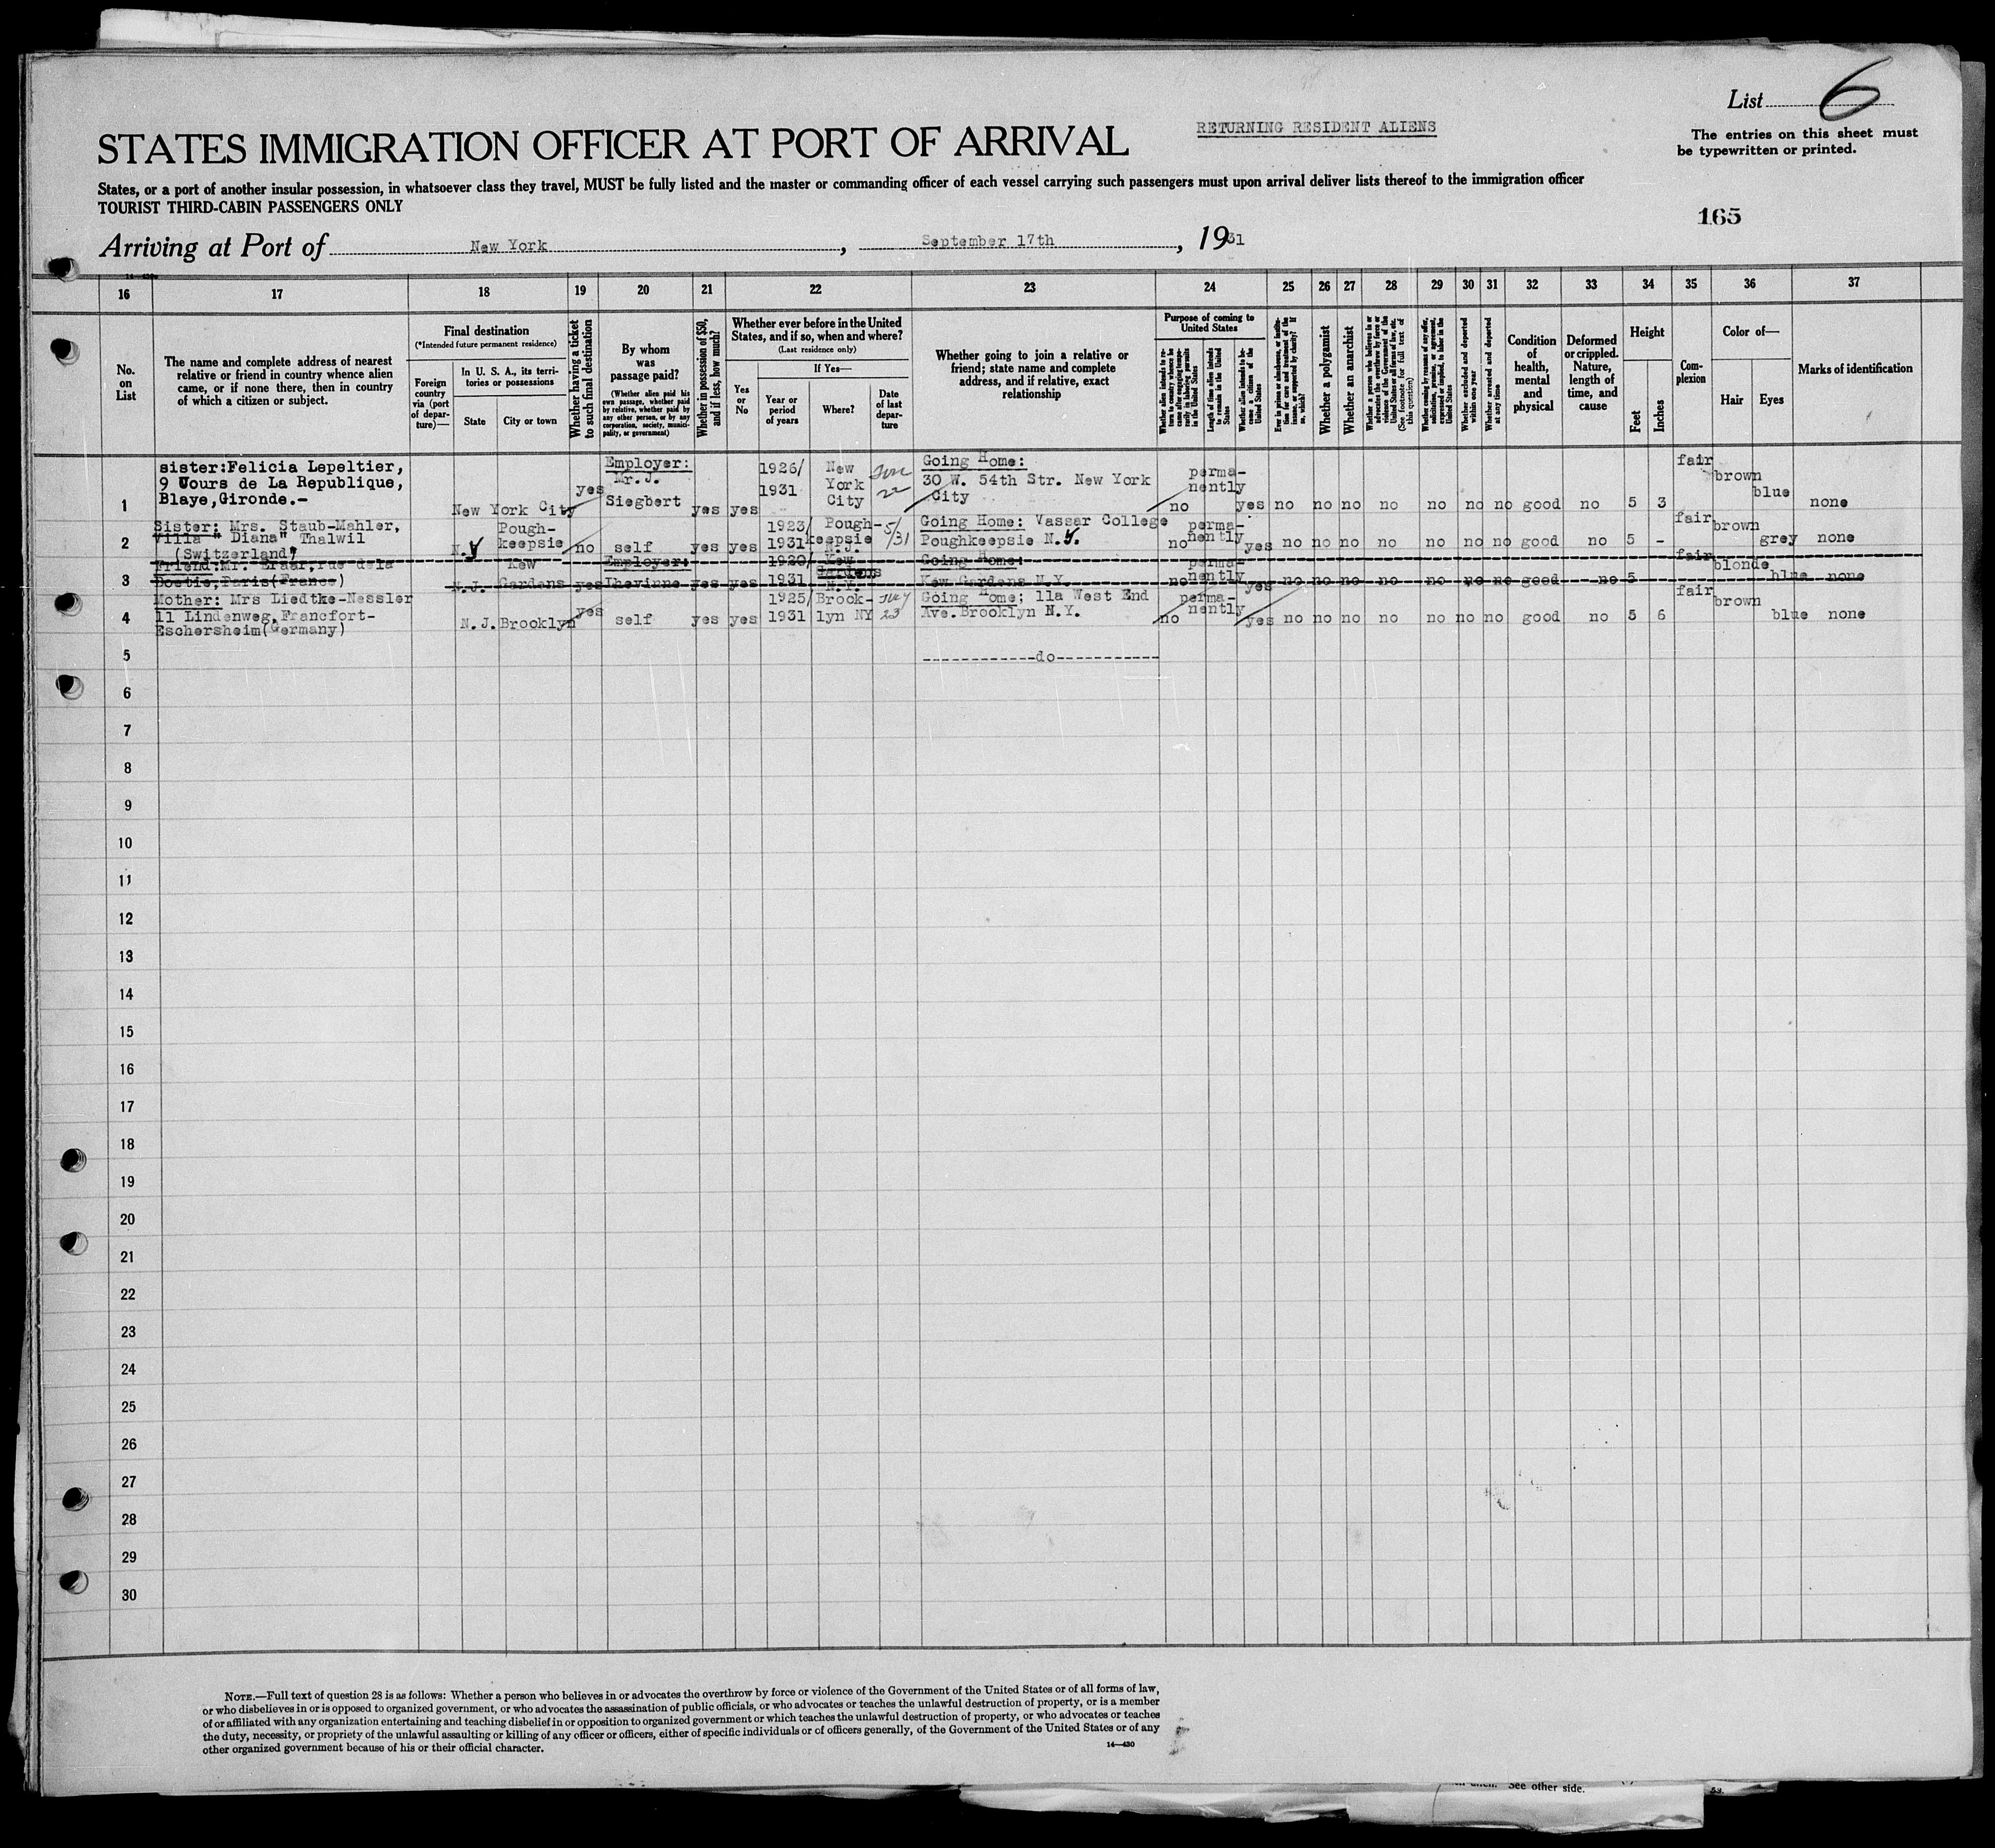 List 6
RETURNING RESIDENT ALIENS
The entries on this sheet must
be typewritten or printed.
STATES IMMIGRATION OFFICER AT PORT OF ARRIVAL
States, or a port of another insular possession, in whatsoever class they travel, MUST be fully listed and the master or commanding officer of each vessel carrying such passengers must upon arrival deliver lists thereof to the immigration officer
TOURIST THIRD-CABIN PASSENGERS ONLY
165
Arriving at Port of New York, September 17th, 1931
16 17 18 19 20 21 22 23 24 25 26 27 28 29 30 31 32 33 34 35 36 37
No.
on
List
The name and complete address of nearest
relative or friend in country whence alien
came, or if none there, then in country
of which a citizen or subject.
Final destination
(*Intended future permanent residence)
Foreign
country
via (port
of depar-
ture)—
In U. S. A., its terri-
tories or possessions
State
City or town
Whether having a ticket
to such final destination
By whom
was
passage paid?
(Whether alien paid his
own passage, whether paid
by relative, whether paid by
any other person, or by any
corporation, society, munici-
pality, or government)
Whether in possession of $50,
and if less, how much?
Whether ever before in the United
States, and if so, when and where?
(Last residence only)
Yes
or
No
If Yes—
Year or
period
of years
Where?
Date
of last
depar-
ture
Whether going to join a relative or
friend; state name and complete
address, and if relative, exact
relationship
Purpose of coming to
United States
Whether alien intends to re-
turn to country whence he
came after engaging tempo-
rarily in laboring pursuits
in the United States
Length of time alien intends
to remain in the United
States
Whether alien intends to be-
come a citizen of the
United States
Ever in prison or almshouse, or institu-
tion for care and treatment of the
insane, or supported by charity? If
so, which?
Whether a polygamist
Whether an anarchist
Whether a person who believes in or
advocates the overthrow by force or
violence of the Government of the
United States or all forms of law, etc.
(See footnote for full text of
this question)
Whether coming by reasons of any offer,
solicitation, promise, or agreement,
expressed or implied, to labor in the
United States
Whether excluded and deported
within one year
Whether arrested and deported
at any time
Condition
of
health,
mental
and
physical
Deformed
or crippled.
Nature,
length of
time, and
cause
Height
Feet
Inches
Com-
plexion
Color of—
Hair
Eyes
Marks of identification
sister:Felicia Lepeltier,
9 Uours de La Republique,
Blaye,Gironde.-
1 New York City yes Employer: Mr. J. Siegbert yes yes 1926/ 1931 New York City June 22 Going Home: 30 W. 54th Str. New York City no perma-nently yes no no no no no no no good no 5 3 fair brown blue none
Sister: Mrs. Staub-Mahler,
Villa " Diana" Thalwil
(Switzerland)
2 N.Y Pough-keepsie no self yes yes 1923/ 1931 Pough-keepsie N.J. 5/31 Going Home: Vassar College Poughkeepsie N.Y. no perma-nently yes no no no no no no no good no 5 - fair brown grey none
Friend:Mr. Erard,rue dela
Boetie,Paris(France)
3 N.J. Kew Gardens yes Employer: Lhevinne yes yes 1920/ 1931 Kew Gardens N.Y. Going Home: Kew Gardens N.Y. no perma-nently yes no no no no no no no good no 5 fair blonde blue none
Mother: Mrs Liedtke-Nessler
11 Lindenweg,Francfort-
Eschersheim(Germany)
4 N.J. Brooklyn yes self yes yes 1925/ 1931 Brook-lyn NY July 23 Going Home; 11a West End Ave.Brooklyn N.Y. no perma-nently yes no no no no no no no good no 5 6 fair brown blue none
5 ------------do-----------
6
7
8
9
10
11
12
13
14
15
16
17
18
19
20
21
22
23
24
25
26
27
28
29
30
NOTE.—Full text of question 28 is as follows: Whether a person who believes in or advocates the overthrow by force or violence of the Government of the United States or of all forms of law,
or who disbelieves in or is opposed to organized government, or who advocates the assassination of public officials, or who advocates or teaches the unlawful destruction of property, or is a member
of or affiliated with any organization entertaining and teaching disbelief in or opposition to organized government or which teaches the unlawful destruction of property, or who advocates or teaches
the duty, necessity, or propriety of the unlawful assaulting or killing of any officer or officers, either of specific individuals or of officers generally, of the Government of the United States or of any
other organized government because of his or their official character.
14—430
See other side.